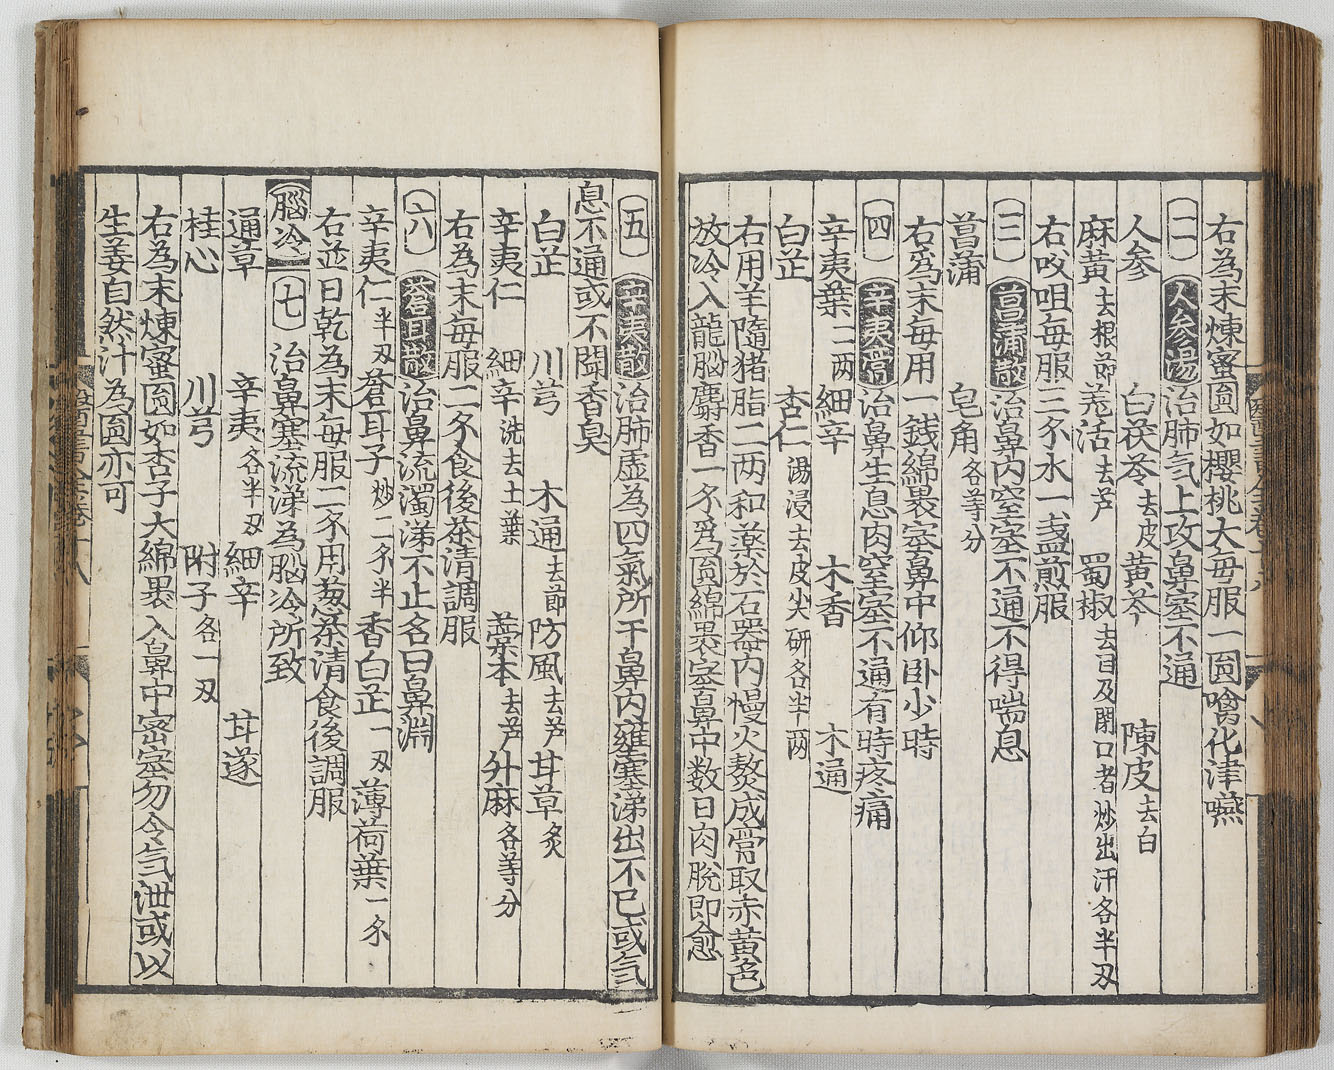 右為末煉蜜圓如櫻桃大毎服一圓噙化津嚥
二 人参湯 治肺気上攻鼻塞不通
人参 白茯苓去皮 黄芩 陳皮去白
麻黄去根節 羗活去芦 蜀椒去目及閉口者炒出汗各半刄
右㕮咀毎服三錢水一盞煎服
三 菖蒲散 治鼻内窒塞不通不得喘息
菖蒲 皂角各等分
右爲末毎用一錢綿裹塞鼻中仰卧少時
四 辛夷膏 治鼻生息肉窒塞不通有時疼痛
辛夷葉二两 細辛 木香 木通
白芷 杏仁湯浸去皮尖研各半两
右用羊隨猪脂二两和薬於石器内慢火熬成膏取赤黄色
放冷入龍脳麝香一錢爲圓綿裹塞鼻中数日肉脱即愈
五 辛夷散 治肺虚為四氣所干鼻内壅塞涕出不已或気
息不通或不聞香臭
白芷 川芎 木通去節 防風去芦 甘草炙
辛夷仁 細辛洗去土葉 藁本去芦 升麻各等分
右為末毎服二錢食後茶清調服
六 蒼耳散 治鼻流濁涕不止名曰鼻淵
辛夷仁半刄 蒼耳子炒二錢半 香白芷一刄 薄荷葉一錢
右並日乾為末毎服二錢用葱茶清食後調服
脳冷 七 治鼻塞流涕為脳冷所致
通草 辛夷各半刄 細辛 甘遂
桂心 川芎 附子各一刄
右為末煉蜜圓如杏子大綿裹入鼻中密塞勿令気泄或以
生姜自然汁為圓亦可